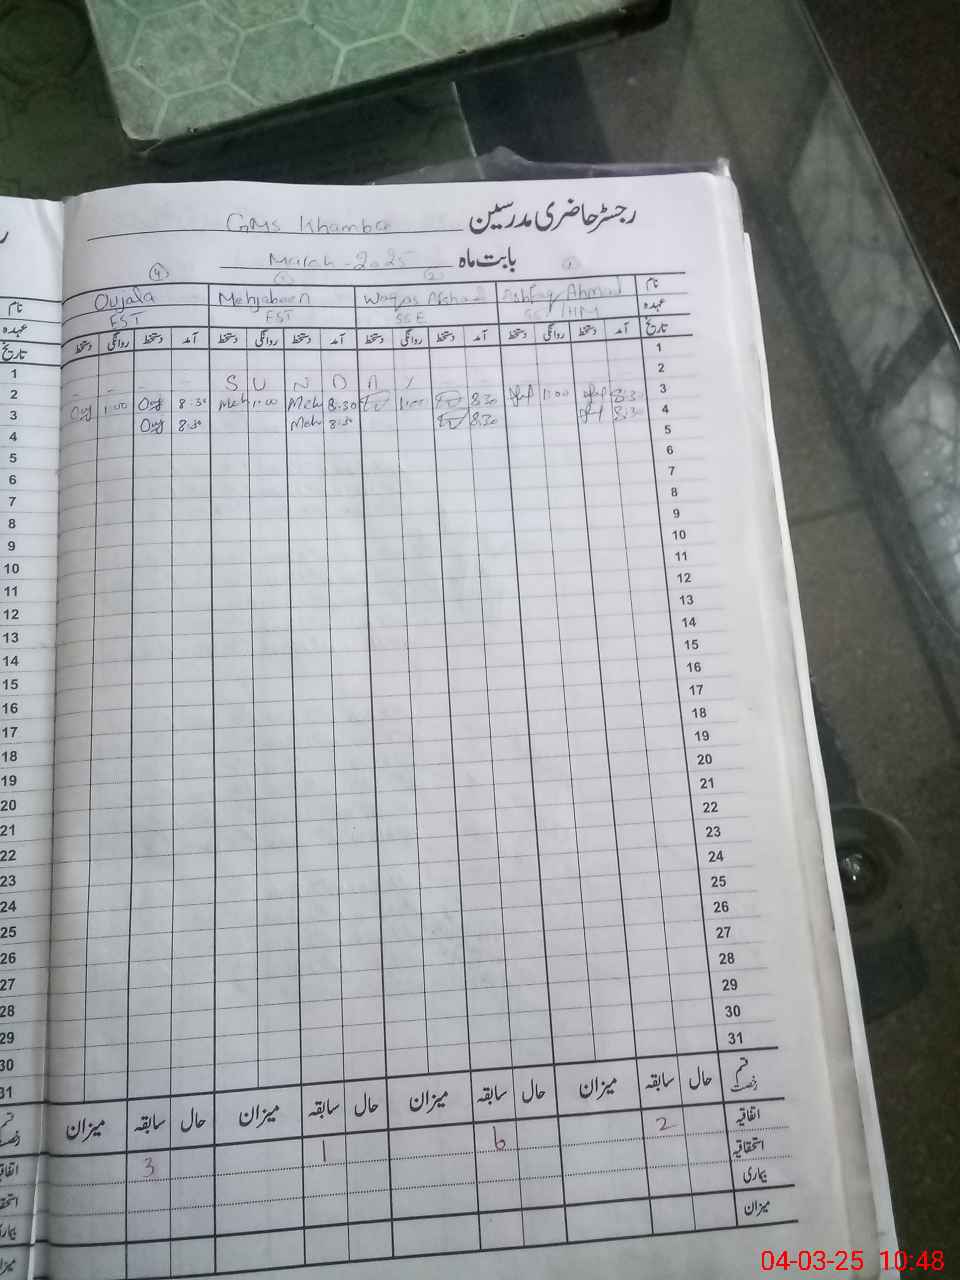 رجسٹر حاضری مدرسین GMS Khamba
بابت ماہ March-2025
نام Ashfaq Ahmad Waqas Afshad Mehjabeen Oujala
عہدہ SST/HM SSE EST EST
تاریخ آمد دستخط روانگی دستخط آمد دستخط روانگی دستخط آمد دستخط روانگی دستخط آمد دستخط روانگی دستخط
1
2 S U N D A Y
3 8:30 1:00 8:30 1:00 8:30 Meh 1:00 Meh 8:30 Ouj 1:00 Ouj
4 8:30 8:30 8:30 Meh 8:30 Ouj
5
6
7
8
9
10
11
12
13
14
15
16
17
18
19
20
21
22
23
24
25
26
27
28
29
30
31
قسم رخصت حال سابقہ میزان حال سابقہ میزان حال سابقہ میزان حال سابقہ میزان
اتفاقیہ 2 6 1 3
استحقاقیہ
بیماری
میزان
نام
عہدہ
تاریخ
1
2
3
4
5
6
7
8
9
10
11
12
13
14
15
16
17
18
19
20
21
22
23
24
25
26
27
28
29
30
31
04-03-25 10:48